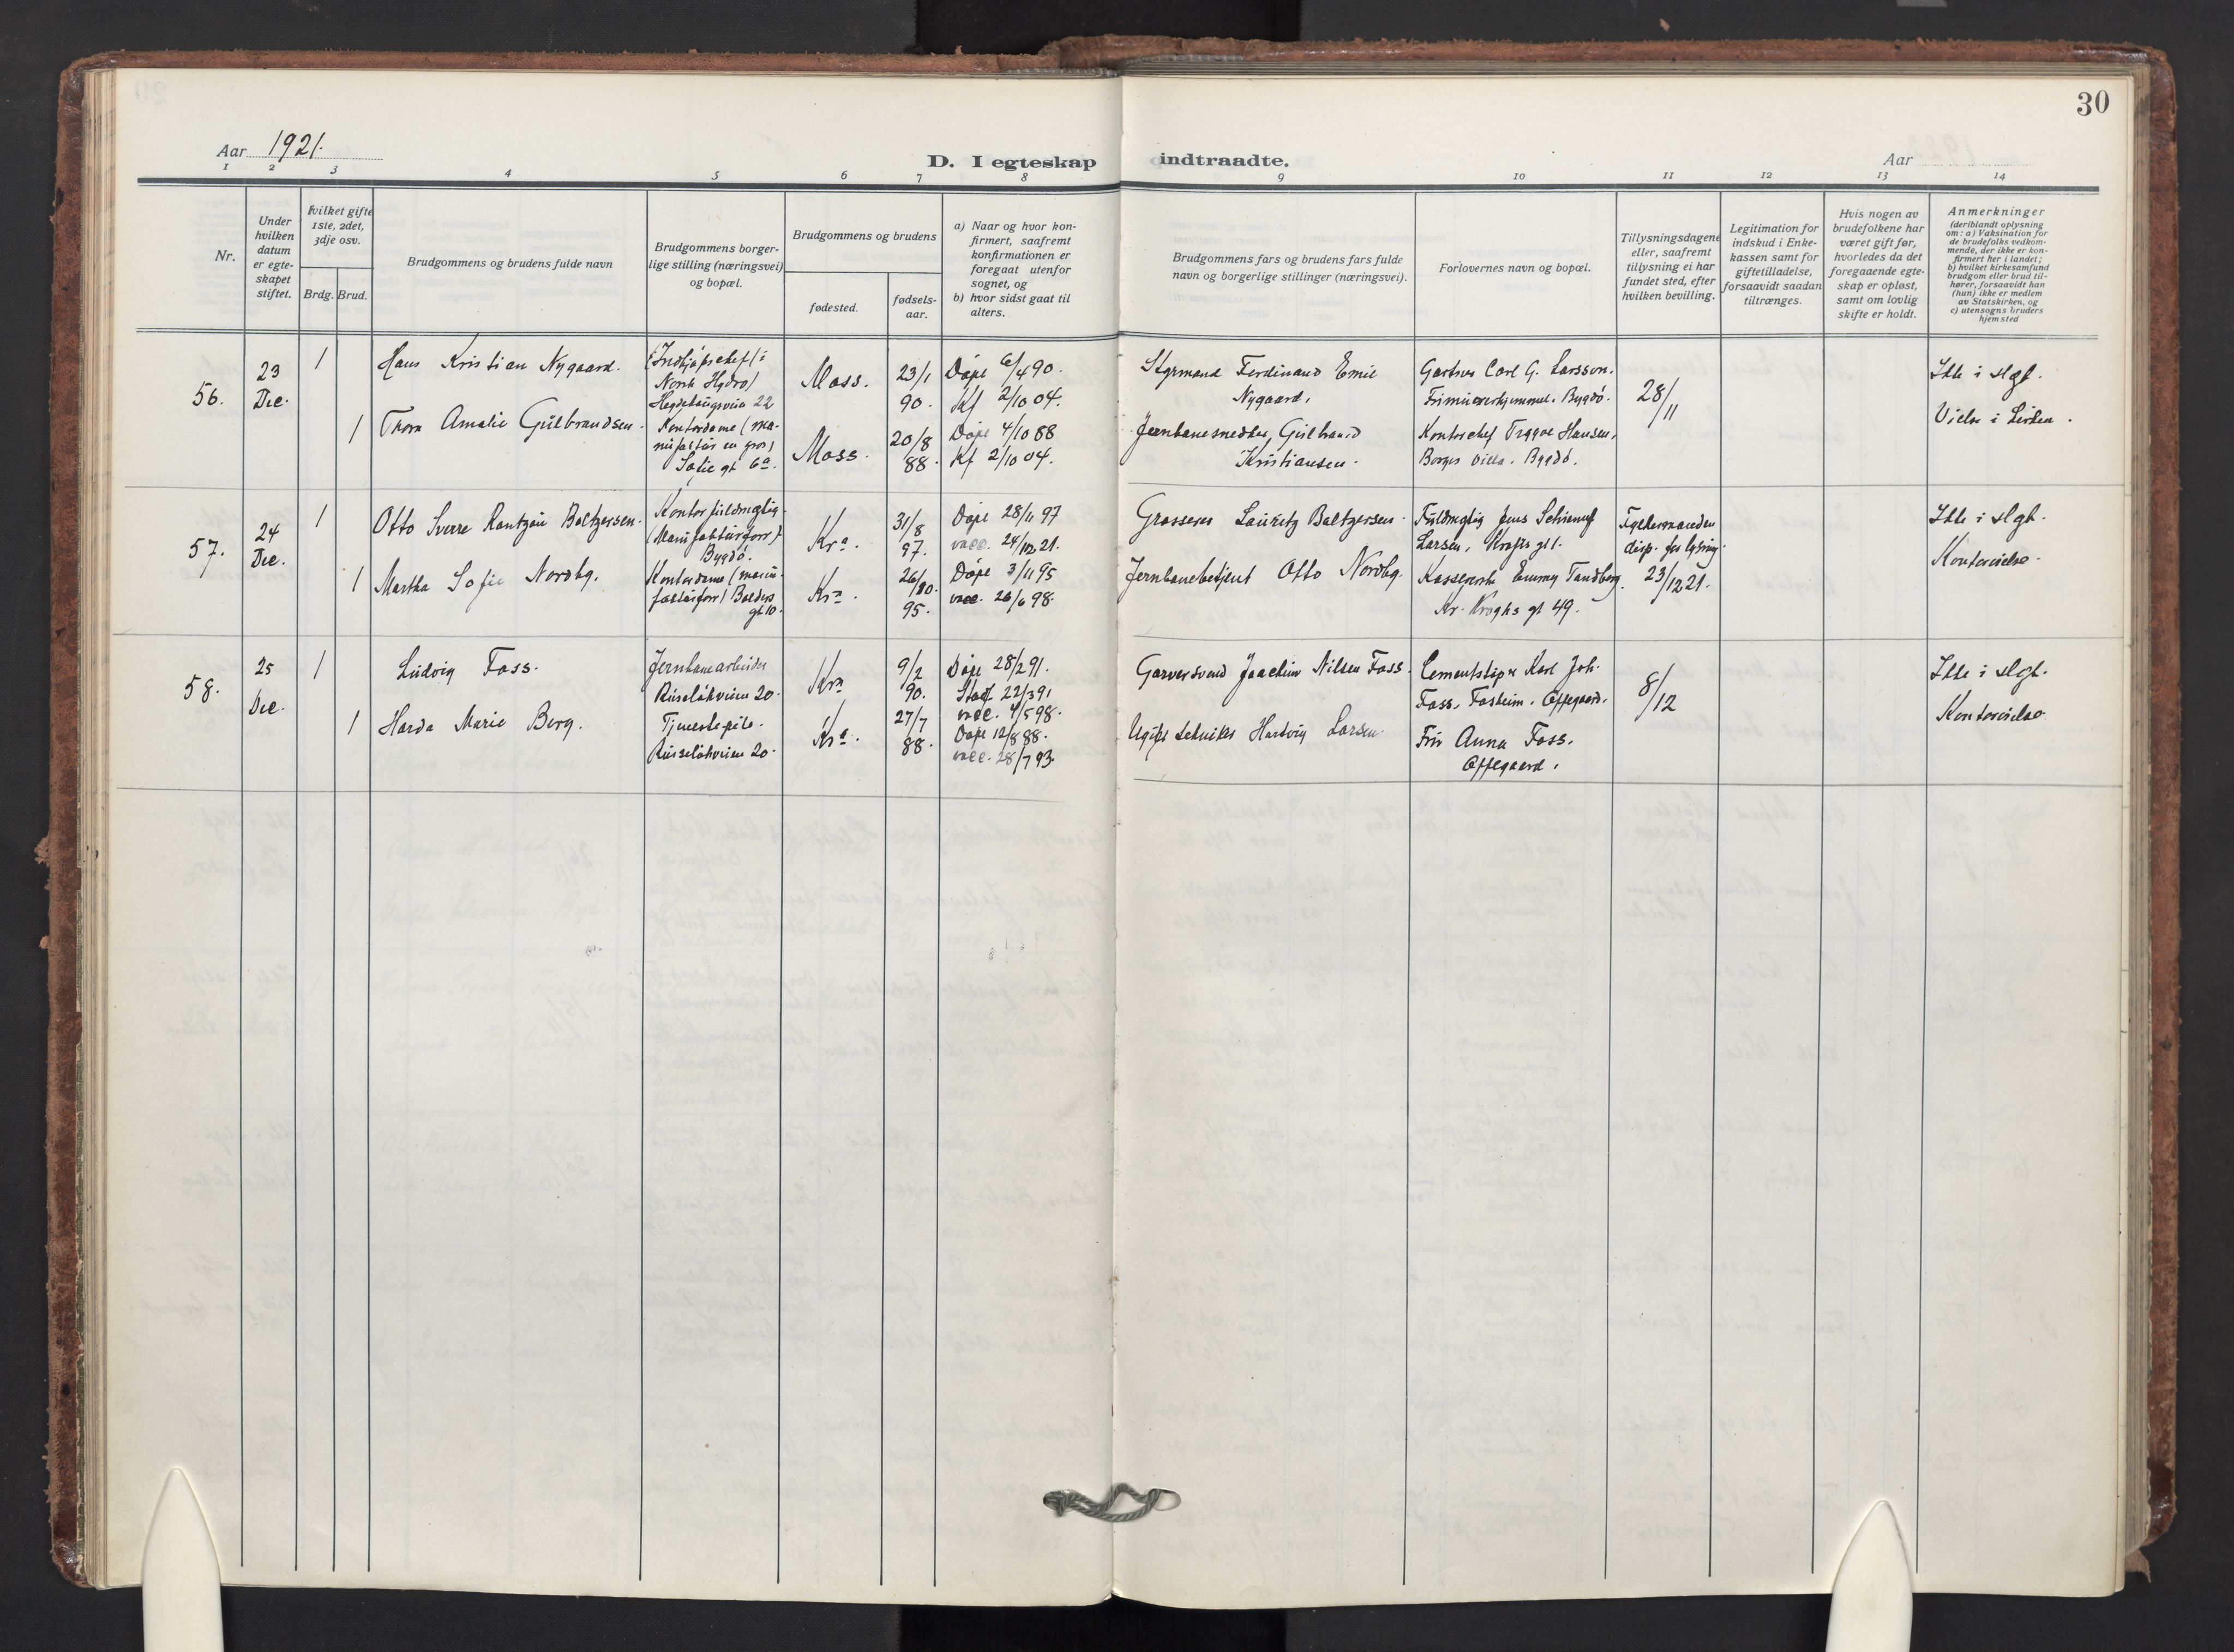 30
Aar 1921.
D. I egteskap indtraadte.
Aar
1 2 3 4 5 6 7 8 9 10 11 12 13 14
Nr.
Under
hvilken
datum
er egte-
skapet
stiftet.
hvilket gifte
1ste, 2det,
3dje osv.
Brdg. Brud.
Brudgommens og brudens fulde navn
Brudgommens borger-
lige stilling (næringsvei)
og bopæl.
Brudgommens og brudens
fødested.
fødsels-
aar.
a) Naar og hvor kon-
firmert, saafremt
konfirmationen er
foregaat utenfor
sognet, og
b) hvor sidst gaat til
alters.
Brudgommens fars og brudens fars fulde
navn og borgerlige stillinger (næringsvei).
Forlovernes navn og bopæl.
Tillysningsdagene
eller, saafremt
tillysning ei har
fundet sted, efter
hvilken bevilling.
Legitimation for
indskud i Enke-
kassen samt for
giftetilladelse,
forsaavidt saadan
tiltrænges.
Hvis nogen av
brudefolkene har
været gift før,
hvorledes da det
foregaaende egte-
skap er opløst,
samt om lovlig
skifte er holdt.
Anmerkninger
(deriblandt oplysning
om: a) Vaksination for
de brudefolks vedkom-
mende, der ikke er kon-
firmert her i landet;
b) hvilket kirkesamfund
brudgom eller brud til-
hører, forsaavidt han
(hun) ikke er medlem
av Statskirken, og
c) utensogns bruders
hjemsted
56.
23
Dec.
1
Hans Kristian Nygaard.
(Indkjøpschef i
Norsk Hydro)
Hegdehaugsveien 22
Moss.
23/1
90.
Døpt 6/4 90.
Kf 2/10 04.
Styrmand Ferdinand Emil
Nygaard.
Gartner Carl G. Larsson.
Frimurerhjemmet. Bygdø.
28/11
Ikke i slgt.
Vielse i kirken.
1
Thora Amalie Gulbrandsen.
Kontordame (ma-
nufaktur en gros)
Sofie gt 6a.
Moss.
20/8
88.
Døpt 4/10 88
Kf 2/10 04.
Jernbanesmed Gulbrand
Kristiansen.
Kontorchef Trygve Hansen,
Borges Villa. Bygdö.
57.
24
Dec.
1
Otto Sverre Rantzau Baltzersen.
Kontorfuldmægtig
(Manufakturforr.)
Bygdö.
Kra.
31/8
97.
Døpt 28/11 97
vacc. 24/12 21.
Grosserer Lauritz Baltzersen.
Fuldmægtig Jens
Larsen, Krafts gt 1.
Fylkesmanden
disp. for lysning.
23/12 21.
Ikke i slgt.
Kontorvielse.
1
Martha Sofie Nordbg.
Kontordame (manu-
fakturforr) Balders
gt 10.
Kra.
26/10
95.
Døpt 3/11 95
vacc. 26/6 98.
Jernbanebetjent Otto Nordbg.
Kassererske Emmy Tandberg.
Kr. Kroghs gt 49.
58.
25
Dec.
1
Ludvig Foss.
Jernbanearbeider
Ruseløkveien 20.
Kra
9/2
90.
Døpt 28/2 91.
Stadf 22/3 91
vacc. 4/5 98.
Garversvend Joachim Nilsen Foss.
Cementstøper Karl Joh.
Foss, Fosheim. Oppegaard.
8/12
Ikke i slgt.
Kontorvielse
1
Harda Marie Berg.
Tjenestepike.
Ruseløkveien 20.
Kra.
27/7
88.
Døpt 12/8 88.
vacc. 28/7 93.
Ugift tekniker Hartvig Larsen.
Fru Anna Foss.
Oppegaard.